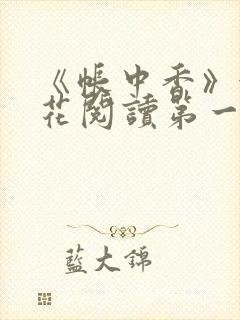 《帳中香》
花閱讀第一
藍大錦